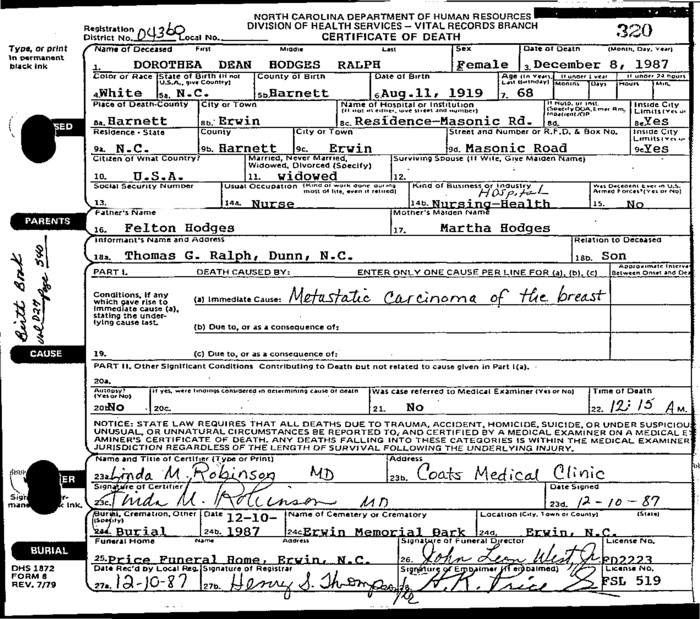 NORTH CAROLINA DEPARTMENT OF HUMAN RESOURCES
DIVISION OF HEALTH SERVICES – VITAL RECORDS BRANCH
CERTIFICATE OF DEATH
320
Registration District No. 04360 Local No.
Type, or print in permanent black ink
Name of Deceased First Middle Last Sex Date of Death (Month, Day, Year)
1. DOROTHEA DEAN HODGES RALPH Female 3. December 8, 1987
Color or Race State of Birth (If not U.S.A., give Country) County of Birth Date of Birth Age (In Years, Last Birthday) If under 1 year Months Days If under 24 hours Hours Min.
4. White 5a. N.C. 5b. Harnett 6. Aug.11, 1919 7. 68
Place of Death-County City or Town Name of Hospital or Institution (If not in either, give street and number) Inside City Limits
8a. Harnett 8b. Erwin 8c. Residence-Masonic Rd. 8d. 8e. Yes
Residence - State County City or Town Street and Number or R.F.D. & Box No. Inside City Limits
9a. N.C. 9b. Harnett 9c. Erwin 9d. Masonic Road 9e. Yes
Citizen of What Country? Married, Never Married, Widowed, Divorced (Specify) Surviving Spouse (If Wife, Give Maiden Name)
10. U.S.A. 11. widowed 12.
Social Security Number Usual Occupation (Kind of work done during most of life, even if retired) Kind of Business or Industry Was Decedent Ever in U.S. Armed Forces? (Yes or No)
Hospital
13. 14a. Nurse 14b. Nursing-Health 15. No
PARENTS
Father's Name Mother's Maiden Name
16. Felton Hodges 17. Martha Hodges
Informant's Name and Address Relation to Deceased
18a. Thomas G. Ralph, Dunn, N.C. 18b. Son
Birth Book Vol D27 Page 540
PART I. DEATH CAUSED BY: ENTER ONLY ONE CAUSE PER LINE FOR (a), (b), (c) Approximate Interval Between Onset and
Conditions, if any which gave rise to immediate cause (a), stating the underlying cause last.
(a) Immediate Cause: Metastatic Carcinoma of the breast
(b) Due to, or as a consequence of:
CAUSE
19. (c) Due to, or as a consequence of:
PART II. Other Significant Conditions Contributing to Death but not related to cause given in Part I(a).
20a.
Autopsy? (Yes or No) If yes, were findings considered in determining cause of death Was case referred to Medical Examiner (Yes or No) Time of Death
20b. No 20c. 21. No 22. 12:15 A M.
NOTICE: STATE LAW REQUIRES THAT ALL DEATHS DUE TO TRAUMA, ACCIDENT, HOMICIDE, SUICIDE, OR UNDER SUSPICIOU
UNUSUAL, OR UNNATURAL CIRCUMSTANCES BE REPORTED TO, AND CERTIFIED BY A MEDICAL EXAMINER ON A MEDICAL E
AMINER'S CERTIFICATE OF DEATH. ANY DEATHS FALLING INTO THESE CATEGORIES IS WITHIN THE MEDICAL EXAMINER
JURISDICTION REGARDLESS OF THE LENGTH OF SURVIVAL FOLLOWING THE UNDERLYING INJURY.
Name and Title of Certifier (Type or Print) Address
23a. Linda M. Robinson MD 23b. Coats Medical Clinic
Signature of Certifier Date Signed
23c. Linda M. Robinson MD 23d. 12-10-87
Burial, Cremation, Other (Specify) Date Name of Cemetery or Crematory Location (City, Town or County) (State)
24a. Burial 24b. 12-10-1987 24c. Erwin Memorial Park 24d. Erwin, N.C.
BURIAL
Funeral Home Name Address Signature of Funeral Director License No.
25. Price Funeral Home, Erwin, N.C. 26. John Leon West Jr. FD2223
DHS 1872
FORM 8
REV. 7/79
Date Rec'd by Local Reg. Signature of Registrar Signature of Embalmer (If embalmed) License No.
27a. 12-10-87 27b. Henry S. Thompson H.R. Price FSL 519